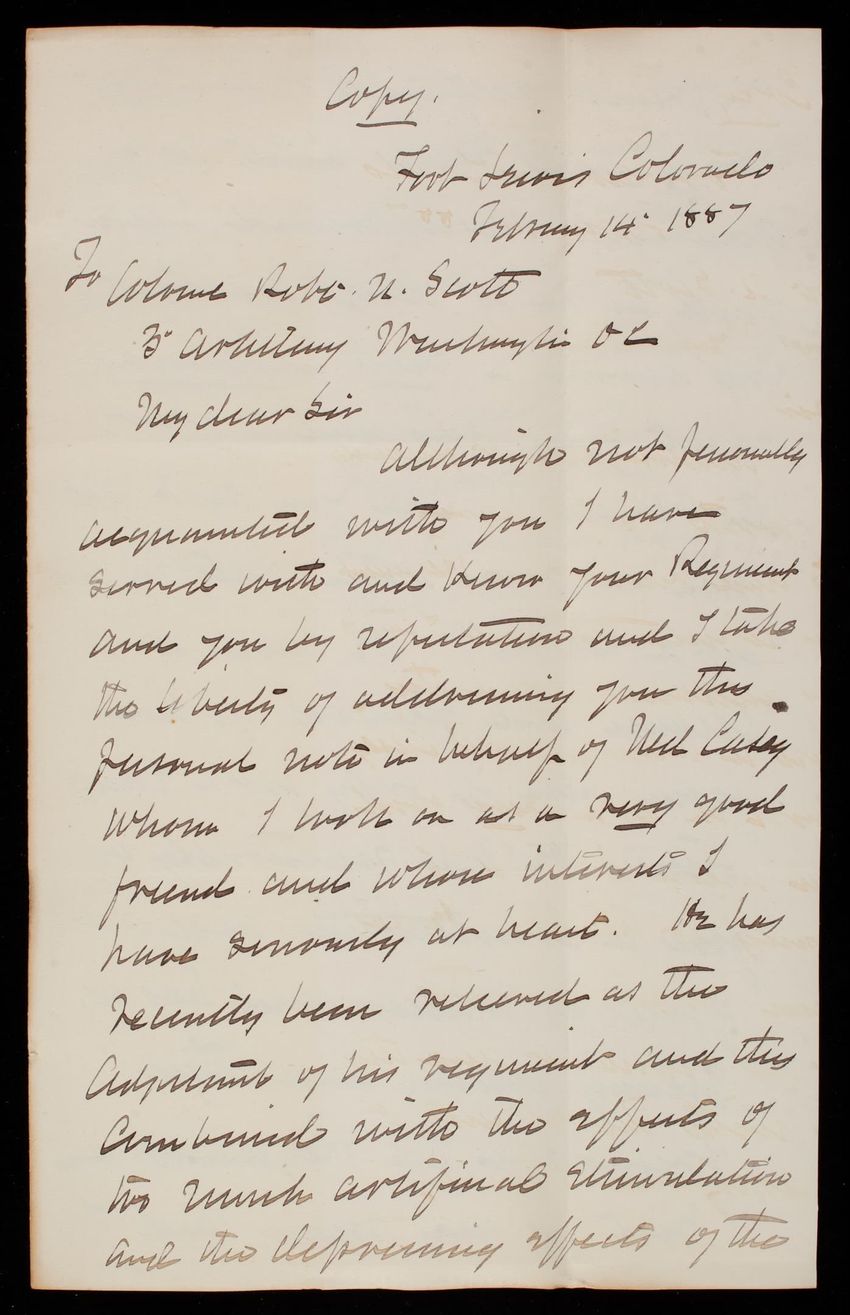 Copy.
Fort Lewis Colorado
February 14" 1887
To
Colonel Robt. N. Scott
3" Artillery Washington D C
My dear Sir
Although not personally
acquainted with you I have
served with and know your Regiment
and you by reputation and I take
the liberty of addressing you this
personal note in behalf of Ned Casey
whom I look on as a very good
friend and whose interests I
have seriously at heart. He has
recently been relieved as the
Adjutant of his regiment and this
combined with the effects of
too much artificial stimulation
and the depressing effects of the